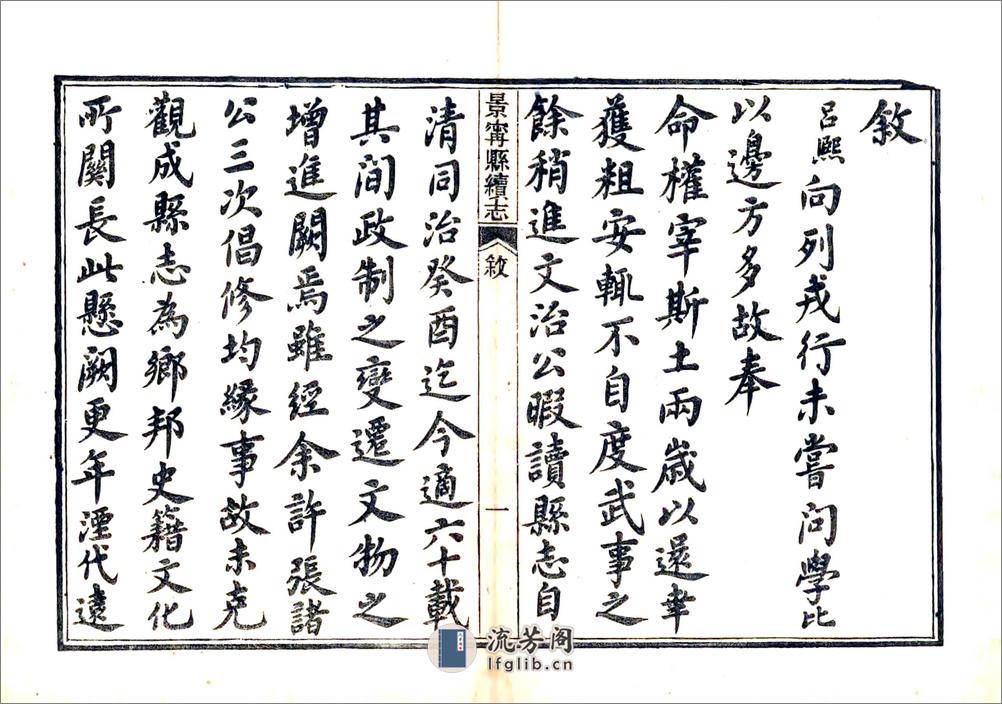 敘
呂熙向列戎行未嘗问學比
以邊方多故奉
命權宰斯土兩歲以還幸
獲粗安輒不自度武事之
餘稍進文治公暇讀縣志自
景甯縣續志
敘
一
清同治癸酉迄今適六十載
其间政制之變遷文物之
增進闕焉雖經余許張諸
公三次倡修均緣事故未克
觀成縣志為鄉邦史籍文化
所關長此懸闕更年湮代遠
流芳阁
lfglib.cn